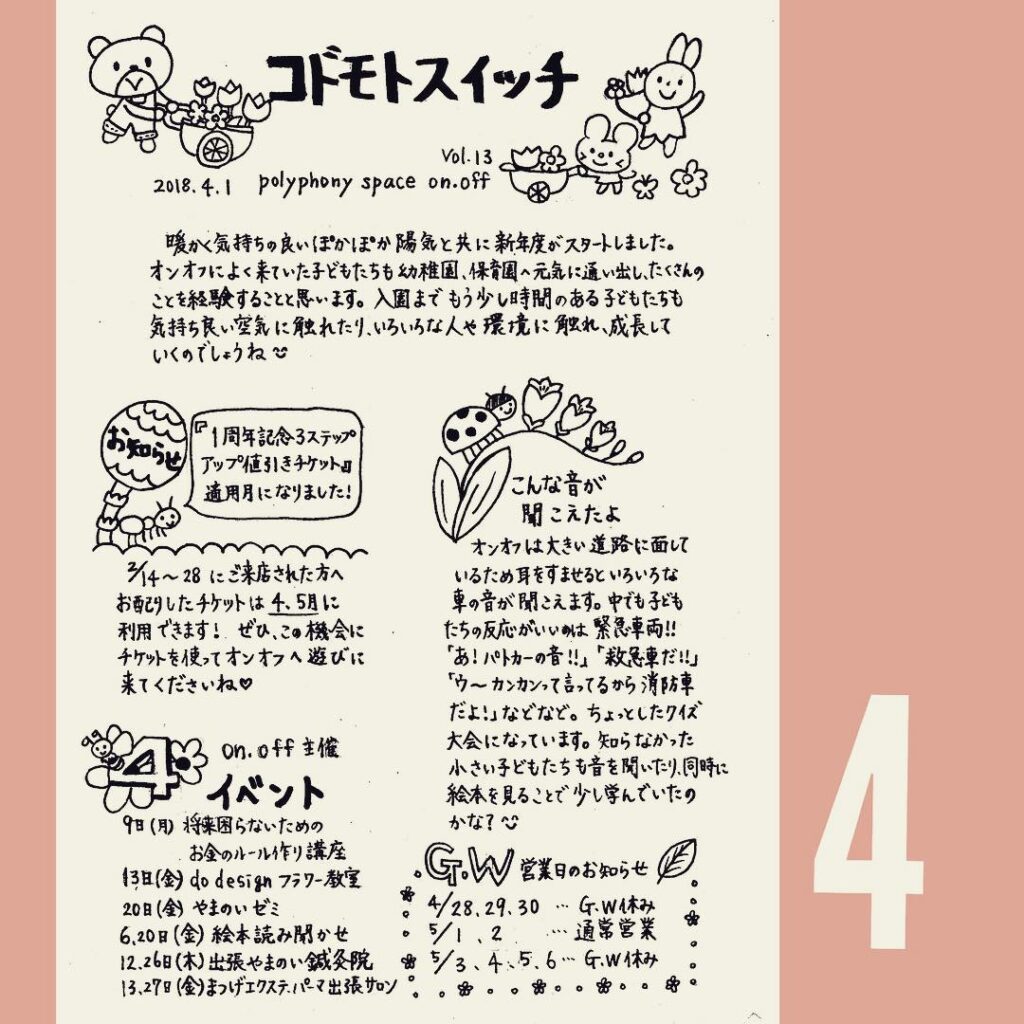 コドモトスイッチ
Vol.13
2018.4.1 polyphony space on.off
暖かく気持ちの良いぽかぽか陽気と共に新年度がスタートしました。
オンオフによく来ていた子どもたちも幼稚園、保育園へ元気に通い出し、たくさんの
ことを経験することと思います。入園までもう少し時間のある子どもたちも
気持ち良い空気に触れたり、いろいろな人や環境に触れ、成長して
いくのでしょうね
お知らせ
『1周年記念3ステップ
アップ値引きチケット』
適用月になりました!
2/14〜28にご来店された方へ
お配りしたチケットは4、5月に
利用できます! ぜひ、この機会に
チケットを使ってオンオフへ遊びに
来てくださいね♡
こんな音が
聞こえたよ
オンオフは大きい道路に面して
いるため耳をすませるといろいろな
車の音が聞こえます。中でも子ども
たちの反応がいいのは緊急車両!!
「あ!パトカーの音!!」「救急車だ!!」
「ウ〜カンカンって言ってるから消防車
だよ!」などなど。ちょっとしたクイズ
大会になっています。知らなかった
小さい子どもたちも音を聞いたり、同時に
絵本を見ることで少し学んでいたの
かな?
4 on.off主催
イベント
9日(月) 将来困らないための
お金のルール作り講座
13日(金) do design フラワー教室
20日(金) やまのいゼミ
6,20日(金) 絵本読み聞かせ
12.26日(木) 出張やまのい鍼灸院
13,27日(金) まつげエクステ、パーマ出張サロン
G.W 営業日のお知らせ
4/28、29、30 … G.W休み
5/1、2 … 通常営業
5/3、4、5、6 … G.W休み
4